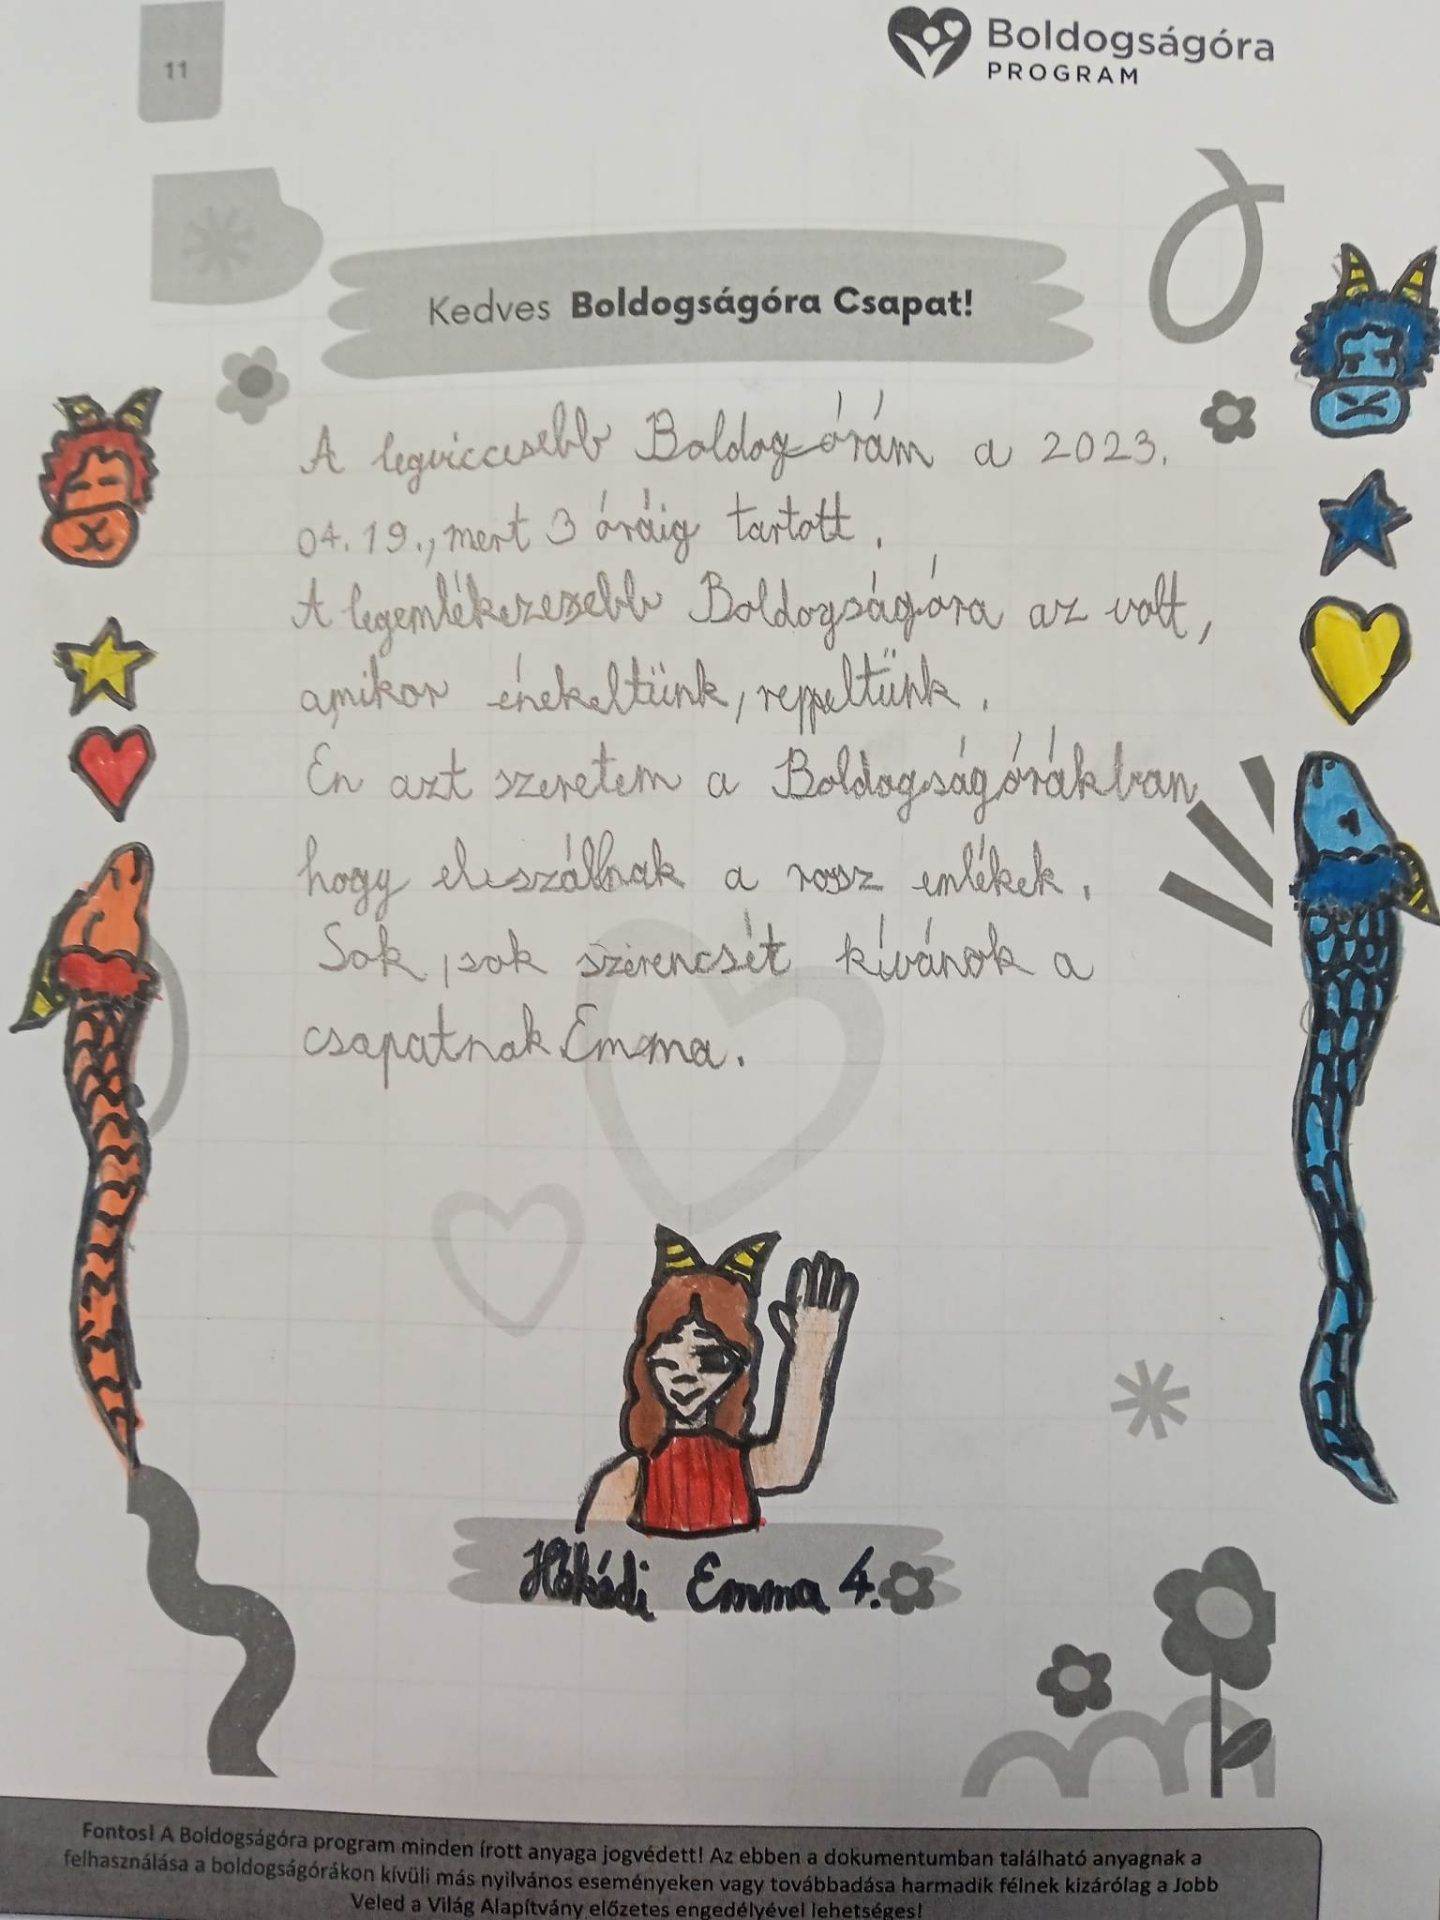 11
Boldogságóra
PROGRAM
Kedves Boldogságóra Csapat!
A legviccesebb Boldog órám a 2023.
04.19., mert 3 óráig tartott.
A legemlékezesebb Boldogságóra az volt,
amikor énekeltünk, reppeltünk.
Én azt szeretem a Boldogságórákban
hogy elszállnak a rossz emlékek.
Sok, sok szerencsét kívánok a
csapatnak Emma.
Emma 4.
Fontos! A Boldogságóra program minden írott anyaga jogvédett! Az ebben a dokumentumban található anyagnak a
felhasználása a boldogságórákon kívüli más nyilvános eseményeken vagy továbbadása harmadik félnek kizárólag a Jobb
Veled a Világ Alapítvány előzetes engedélyével lehetséges!